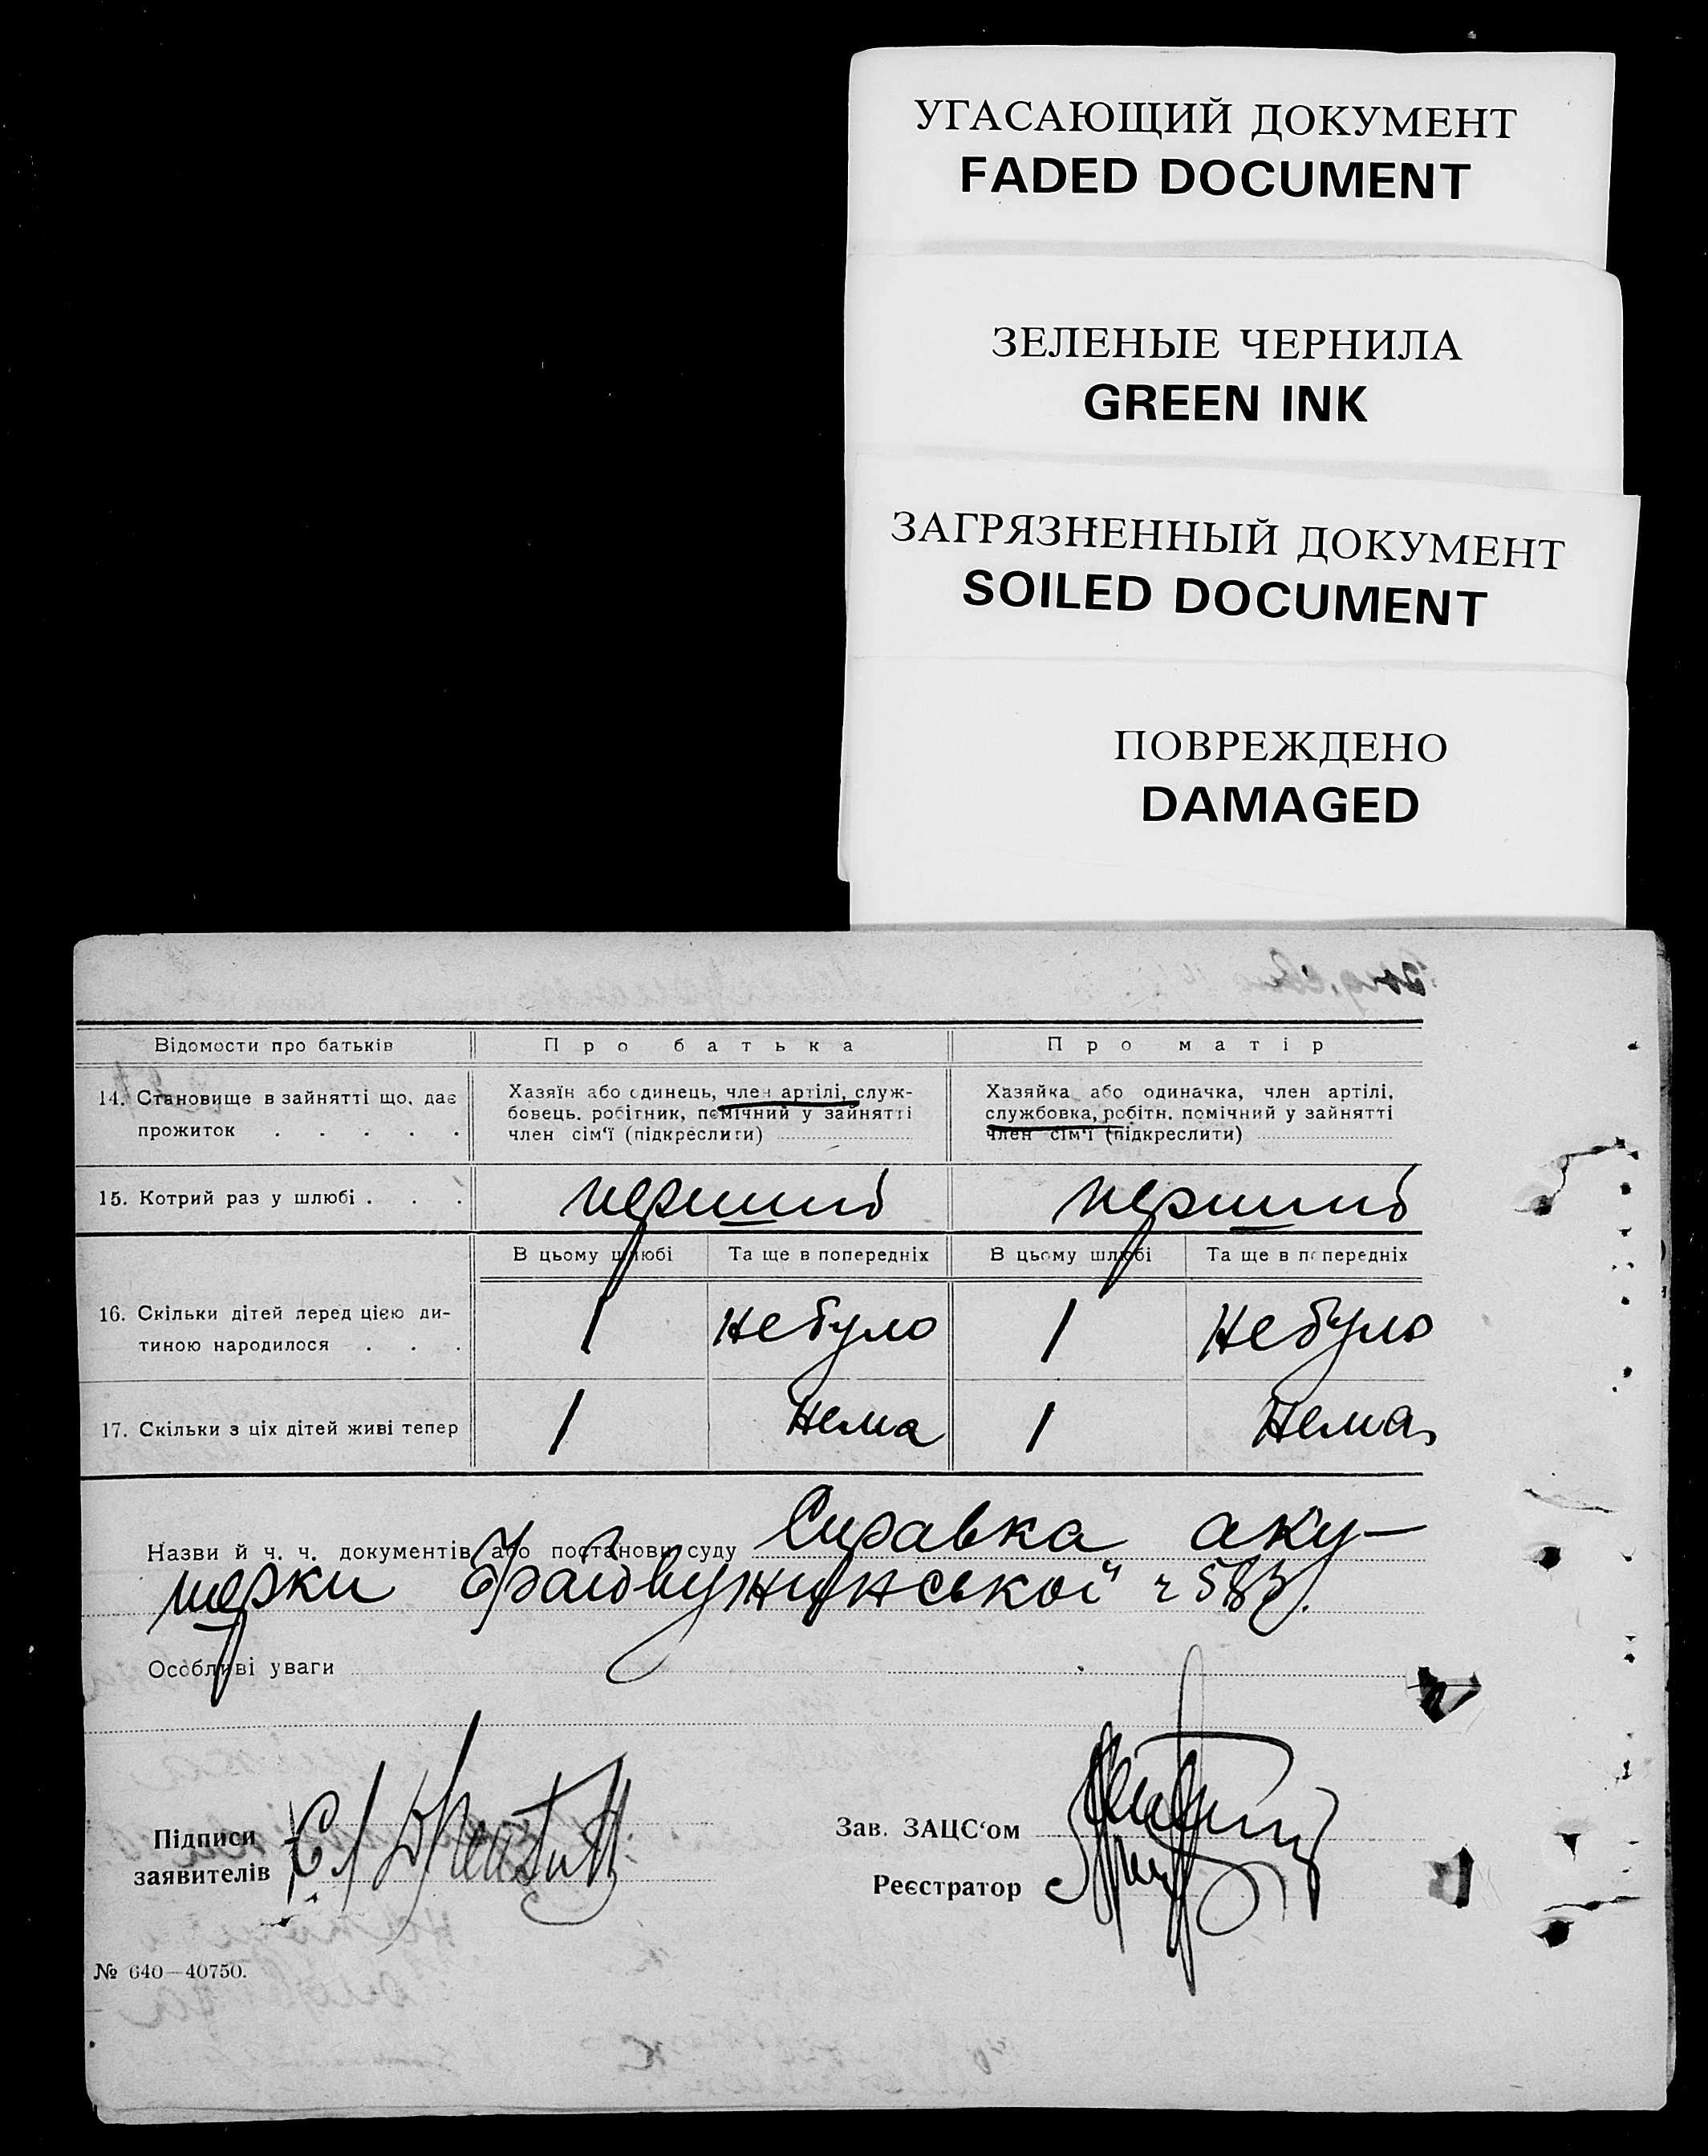 УГАСАЮЩИЙ ДОКУМЕНТ
FADED DOCUMENT
ЗЕЛЕНЫЕ ЧЕРНИЛА
GREEN INK
ЗАГРЯЗНЕННЫЙ ДОКУМЕНТ
SOILED DOCUMENT
ПОВРЕЖДЕНО
DAMAGED
Відомости про батьків Про батька Про матір
14. Становище в зайнятті що, дає прожиток . . . . .
Хазяїн або одинець, член артілі, служ-
бовець, робітник, помічний у зайнятті
член сім'ї (підкреслити)
Хазяйка або одиначка, член артілі,
службовка, робітн. помічний у зайнятті
член сім'ї (підкреслити)
15. Котрий раз у шлюбі . . . перший перший
В цьому шлюбі Та ще в попередніх В цьому шлюбі Та ще в попередніх
16. Скільки дітей перед цією ди-
тиною народилося . . . 1 не було 1 не було
17. Скільки з ціх дітей живі тепер 1 нема 1 нема
Назви й ч. ч. документів або постанови суду Справка аку-
шерки
Особливі уваги
Підписи
заявителів
Зав. ЗАЦС'ом
Реєстратор
№ 640—40750.